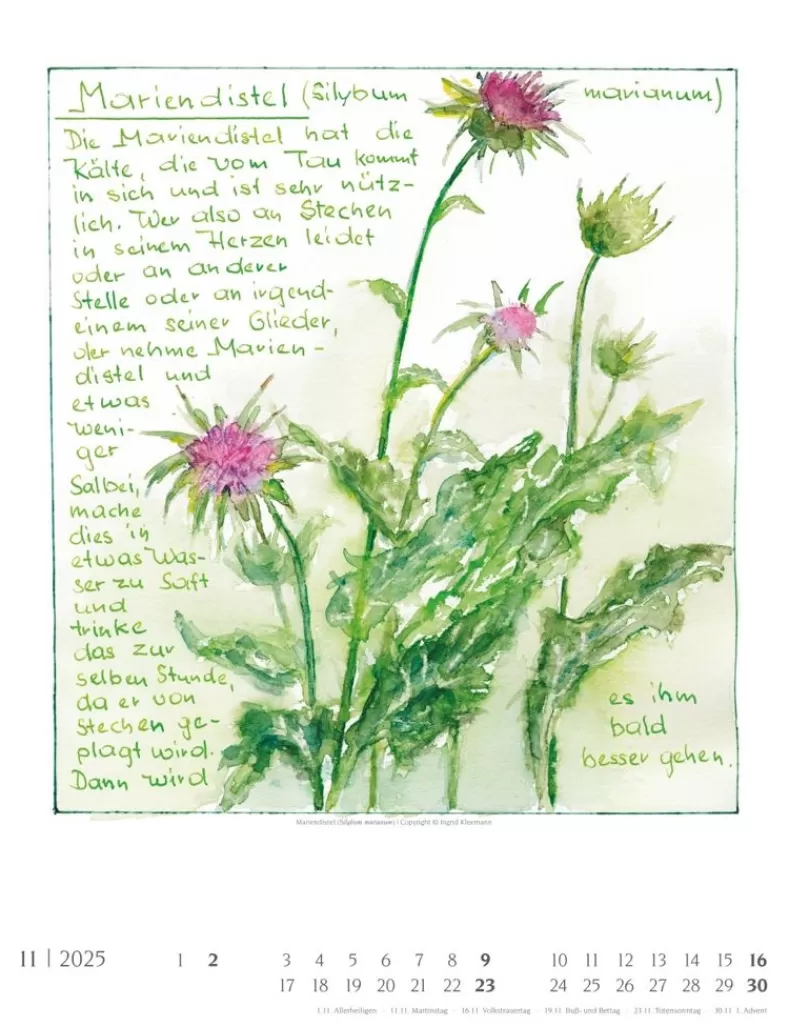 Mariendistel (Silybum marianum)
Die Mariendistel hat die
Kälte, die vom Tau kommt
in sich und ist sehr nütz-
lich. Wer also an Stechen
in seinem Herzen leidet
oder an anderer
Stelle oder an irgend-
einem seiner Glieder,
der nehme Marien-
distel und
etwas
weni-
ger
Salbei,
mache
dies in
etwas Was-
ser zu Saft
und
trinke
das zur
selben Stunde,
da er von
Stechen ge-
plagt wird.
Dann wird
es ihm
bald
besser gehen.
Mariendistel (Silybum marianum) | Copyright © Ingrid Kleemann
11 | 2025 1 2 3 4 5 6 7 8 9 10 11 12 13 14 15 16
17 18 19 20 21 22 23 24 25 26 27 28 29 30
1.11. Allerheiligen · 11.11. Martinstag · 16.11. Volkstrauertag · 19.11. Buß- und Bettag · 23.11. Totensonntag · 30.11. 1. Advent